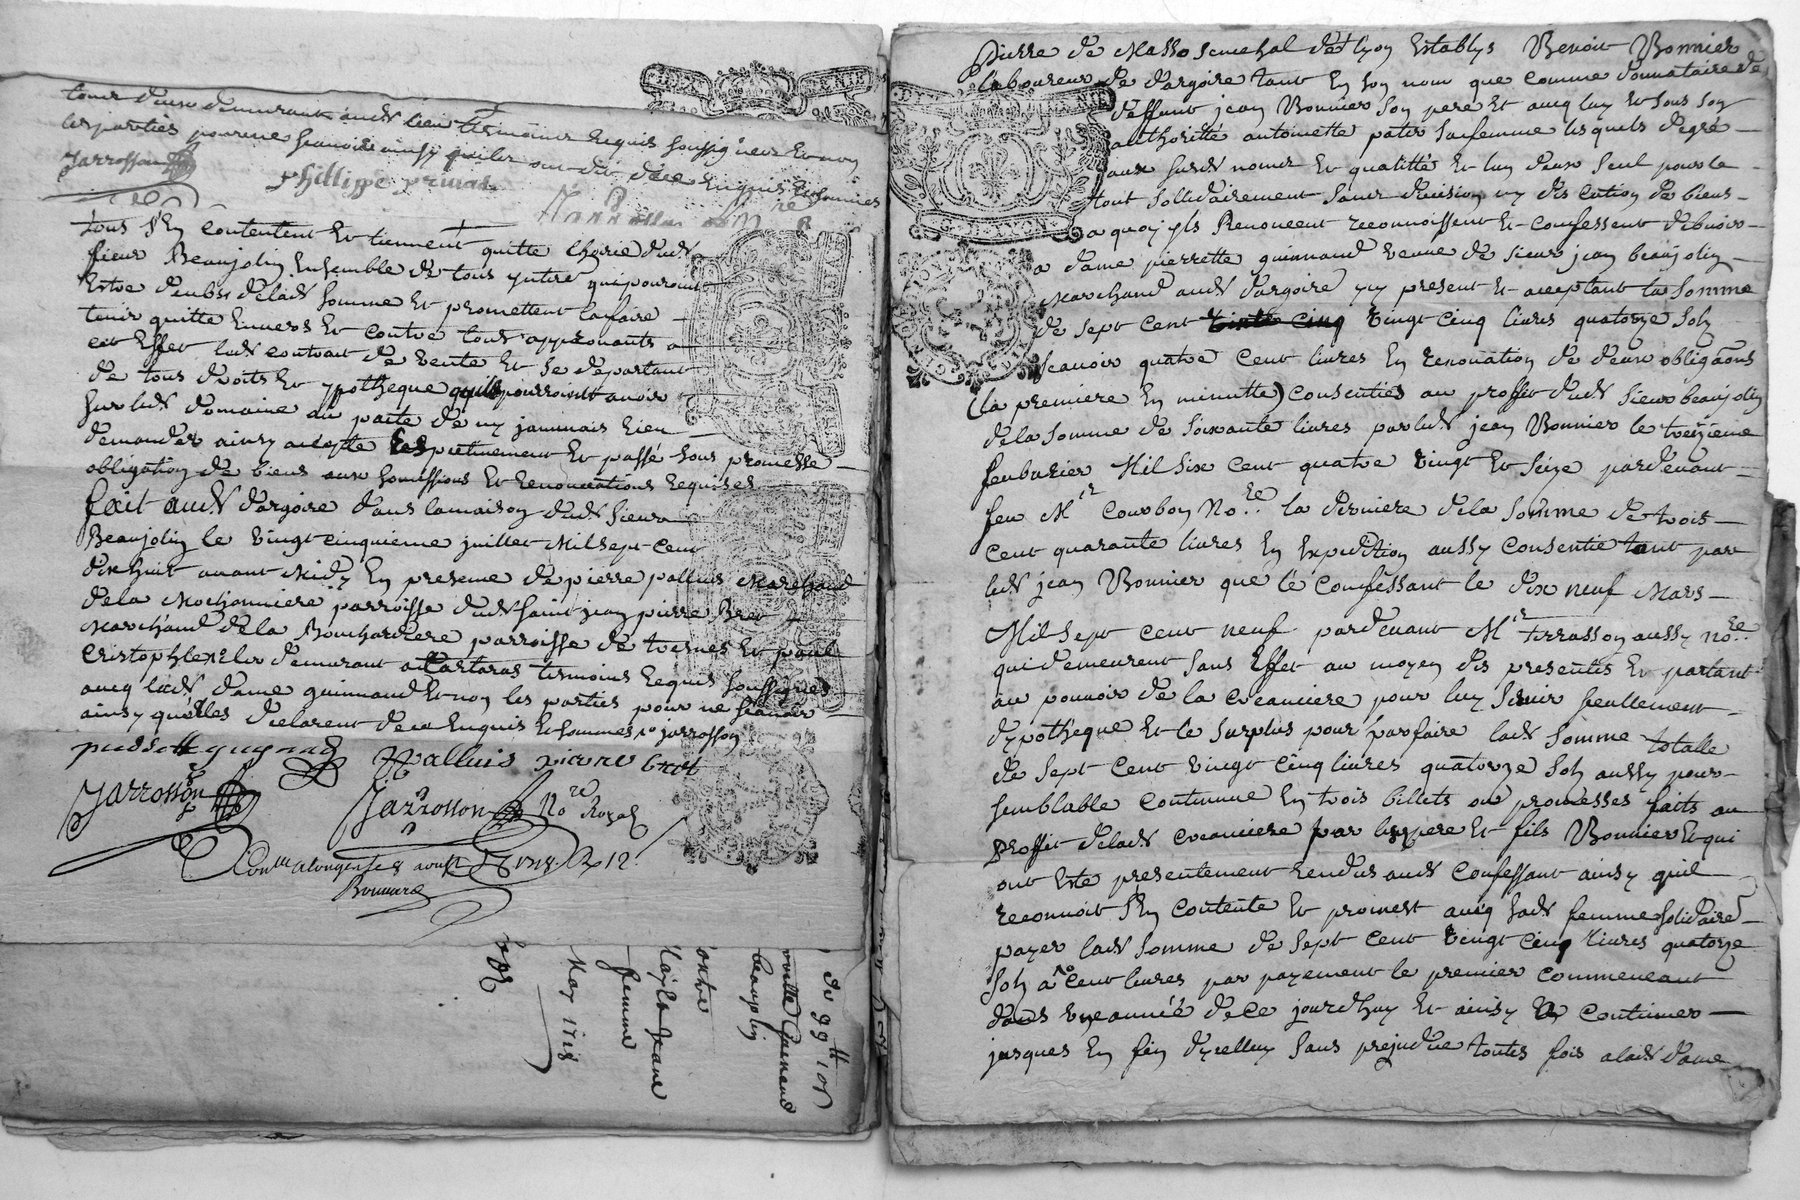 tous deux demeurants audt lieu tesmoins requis soussignes et non
les parties pour ne scavoir ainsy quils ont dit de ce enquis et sommes
Jarrosson
phillippe primat
tous s'En contentent et tiennent quitte
sieur Beaujolin Ensemble de tous
Estre deubs de ladt somme et promettent la faire
tenir quitte Envers et contre tous
cet Effet ledt contrat de vente et se departant
de tous droits et ypotheque quils pourroient avoir
sur ledt domaine au pacte de ny jammais rien
demander ainsy accepte et passé sous promesse
obligation de biens aux somissions et renonciations requises
fait audt dargoire dans la maison dudt sieur
Beaujolin le vingt cinquieme juillet Mil sept cent
dix huit avant Midy En presence de pierre palluis Marchand
de la parroisse dudt saint jean pierre Bret
Marchand de la Bouchardiere parroisse de et
demurant tesmoins requis soussignes
avecq ladt dame guinnand et non les parties pour ne scavoir
ainsy quelles declarent de ce Enquis et sommes jarrosson
Palluis pierre bret
Jarrosson Jarrosson No.re Royal
1718 12
Du
Beaujolin
femme
May 1718
Pierre de Masso senechal de lyon Establys Benoit Bonnier
laboureur de dargoire tant En son nom que comme donnataire de
deffunt jean Bonnier son pere Et avecq luy Et sous son
authoritte antoinette pater sa femme lesquels de gré
aux susdt noms Et qualitté Et lun deux seul pour le
tout sollidairement sans division ny discution de biens
a quoy yls Renoncent reconnoissent Et confessent debvoir
a dame pierrette guinnand veuve de sieur jean beaujolin
Marchand audt dargoire yy present Et acceptant la somme
de sept cent trente cinq vingt cinq livres quatorze sols
scavoir quatre cent livres En renovation de deux obligaons
(la premiere En minutte) consenties au proffit dudt sieur beaujolin
de la somme de soixante livres par ledt jean Bonnier le treizieme
febvrier Mil six cent quatre vingt Et seize pardevant
feu Mr Courbon No.re la derniere de la somme de trois
cent quarante livres En Expedition aussy consentie tant par
ledt jean Bonnier que le confessant le dix neuf Mars
Mil sept cent neuf pardevant Mr terrasson aussy no.re
qui demeurent sans Effet au moyen des presentes Et partant
au pouvoir de la creanciere pour luy servir seullement
dypotheque Et le surplus pour parfaire ladt somme totalle
de sept cent vingt cinq livres quatorze sols aussy pour
semblable contenue En trois billets ou promesses faits au
proffit de ladt creanciere par les pere Et fils Bonnier Et qui
ont Esté presentement rendus audt confessant ainsy quil
reconnoit s'En contente Et promest avecq sadt femme solidaire
payer ladt somme de sept cent vingt cinq livres quatorze
sols a cent livres par payement le premier commencant
dans une année de ce jourdhuy Et ainsy continuer
jusques En fin dycelluy sans prejudice toutes fois a ladt dame